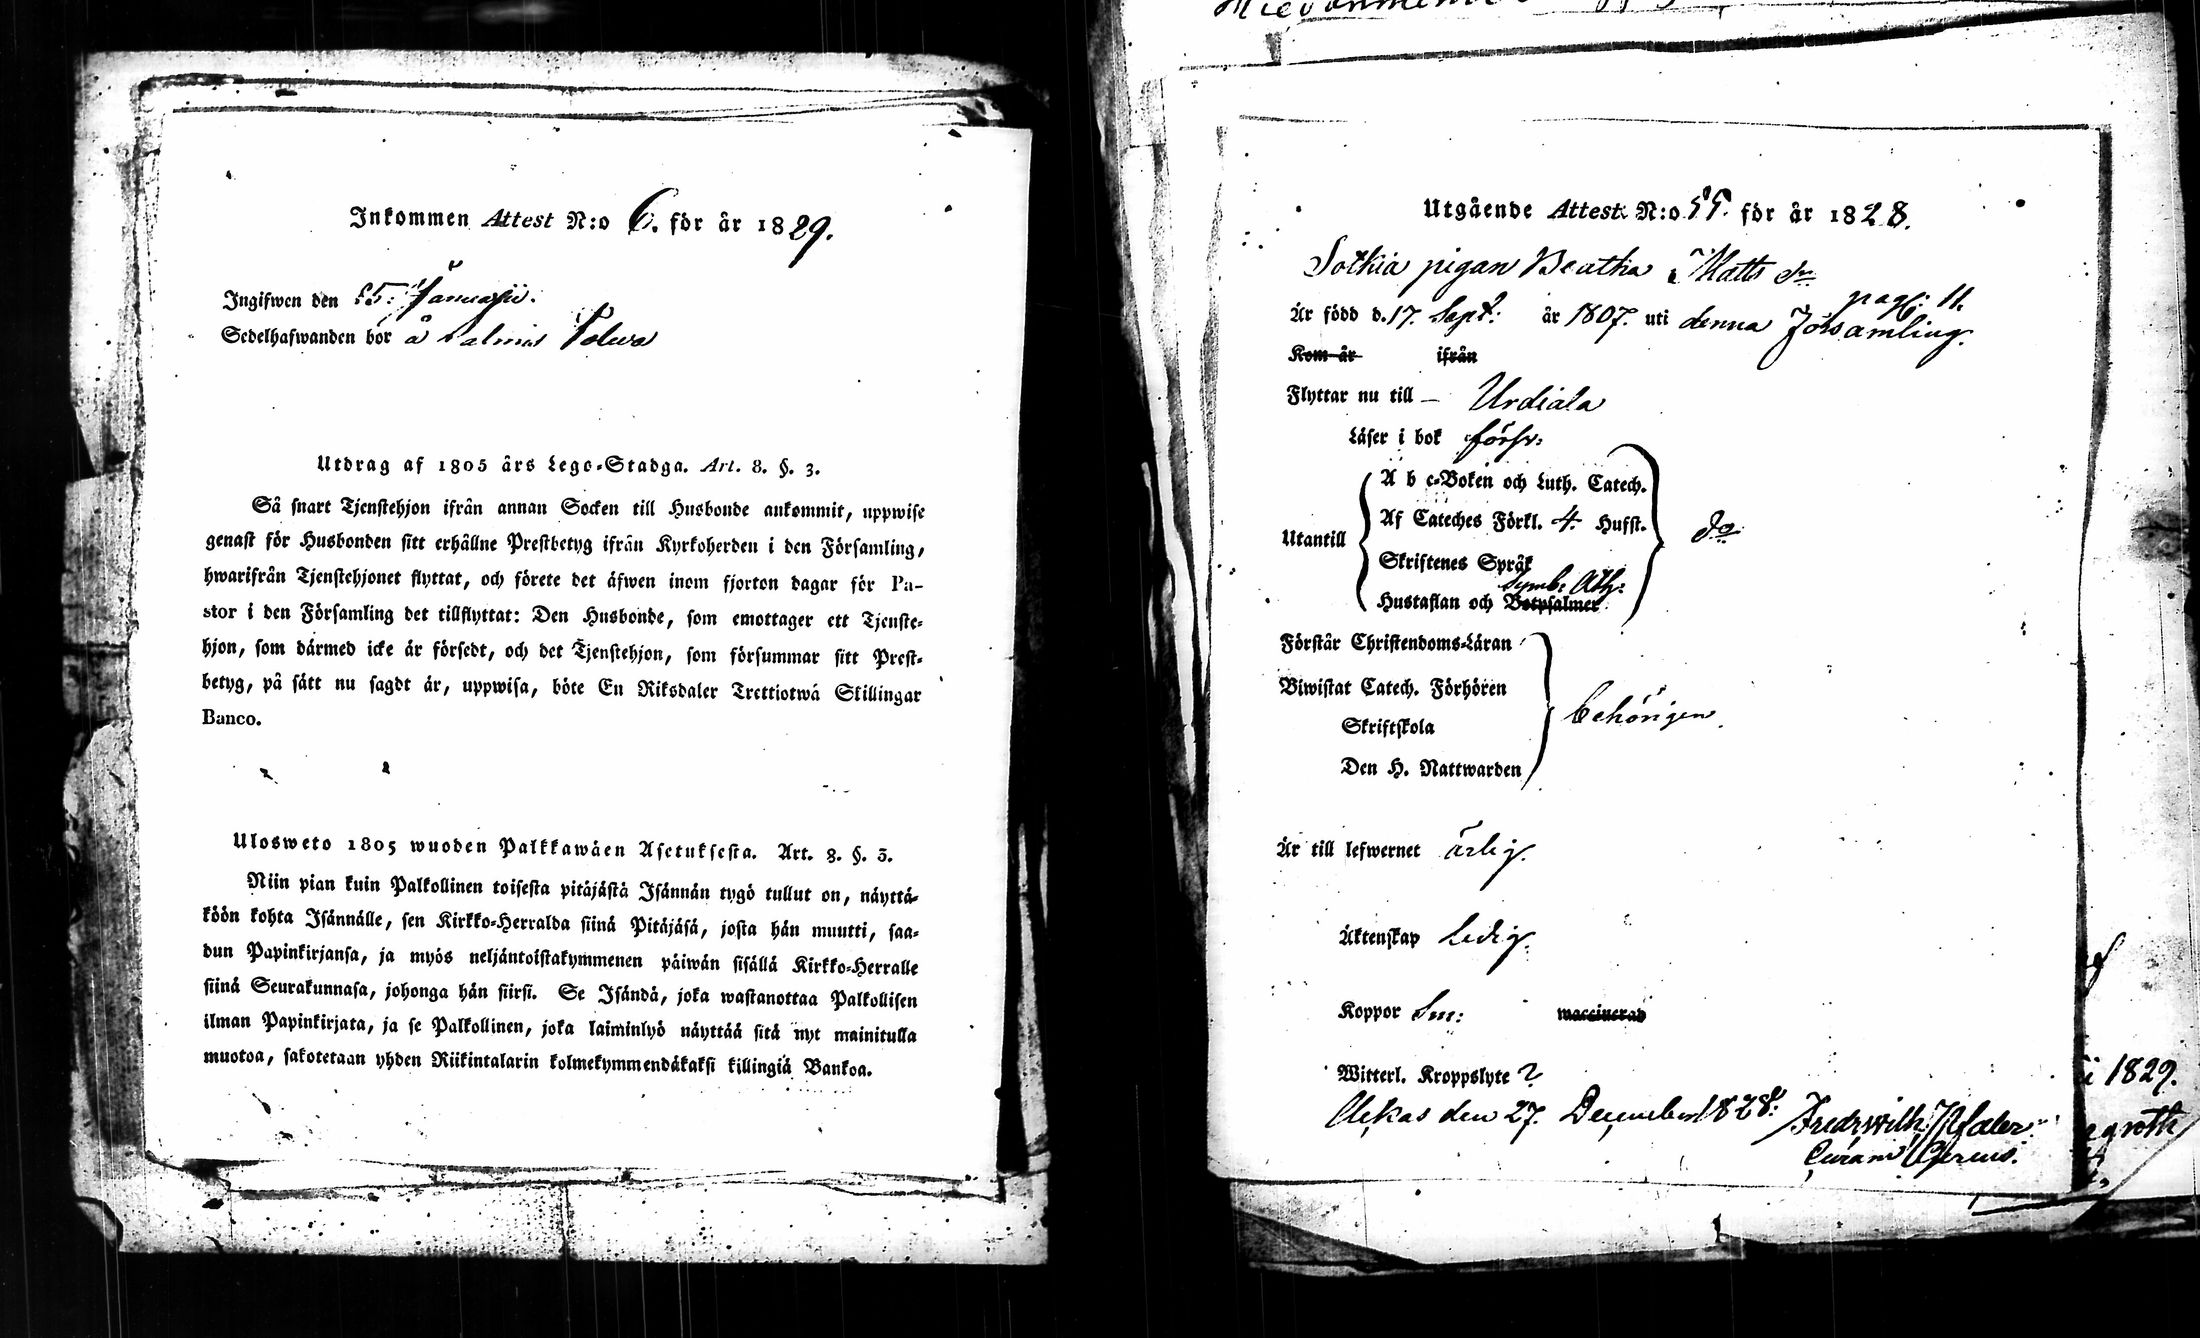 Inkommen Attest N:o 6. för år 1829.
Ingifwen den 15: Januarii.
Sedelhafwanden bor å Salmis
Utdrag af 1805 års Lego-Stadga. Art. 8. §. 3.
Så snart Tjenstehjon ifrån annan Socken till Husbonde ankommit, uppwise
genast för Husbonden sitt erhållne Prestbetyg ifrån Kyrkoherden i den Församling,
hwarifrån Tjenstehjonet flyttat, och förete det äfwen inom fjorton dagar för Pa-
stor i den Församling det tillflyttat: Den Husbonde, som emottager ett Tjenste-
hjon, som därmed icke är försedt, och det Tjenstehjon, som försummar sitt Prest-
betyg, på sätt nu sagdt är, uppwisa, böte En Riksdaler Trettiotwå Skillingar
Banco.
Ulosweto 1805 wuoden Palkkawäen Asetuksesta. Art. 8. §. 3.
Niin pian kuin Palkollinen toisesta pitäjästä Isännän tygö tullut on, näyttä-
köön kohta Isännälle, sen Kirkko-Herralda siinä Pitäjäsä, josta hän muutti, saa-
dun Papinkirjansa, ja myös neljäntoistakymmenen päiwän sisällä Kirkko-Herralle
siinä Seurakunnasa, johonga hän siirsi. Se Isändä, joka wastanottaa Palkollisen
ilman Papinkirjata, ja se Palkollinen, joka laiminlyö näyttää sitä nyt mainitulla
muotoa, sakotetaan yhden Riikintalarin kolmekymmendäkaksi killingiä Bankoa.
Utgående Attest N:o för år 1828.
Sotkia pigan Beatha Matts dr
pag: 11.
Är född d. 17. Sept: år 1807. uti denna Församling.
Kom år ifrån
Flyttar nu till — Urdiala
Läser i bok försv:
A b c-Boken och Luth. Catech.
Af Cateches Förkl. 4. Hufst.
Utantill do
Skriftenes Språk
Symb: Ath:
Hustaflan och Botpsalmer
Förstår Christendoms-Läran
Biwistat Catech. Förhören
behörigen.
Skriftskola
Den H. Nattwarden
Är till lefwernet ärlig.
Äktenskap ledig.
Koppor Sm: vaccinerad
Witterl. Kroppslyte ?
den 27. December 1828:
1829.